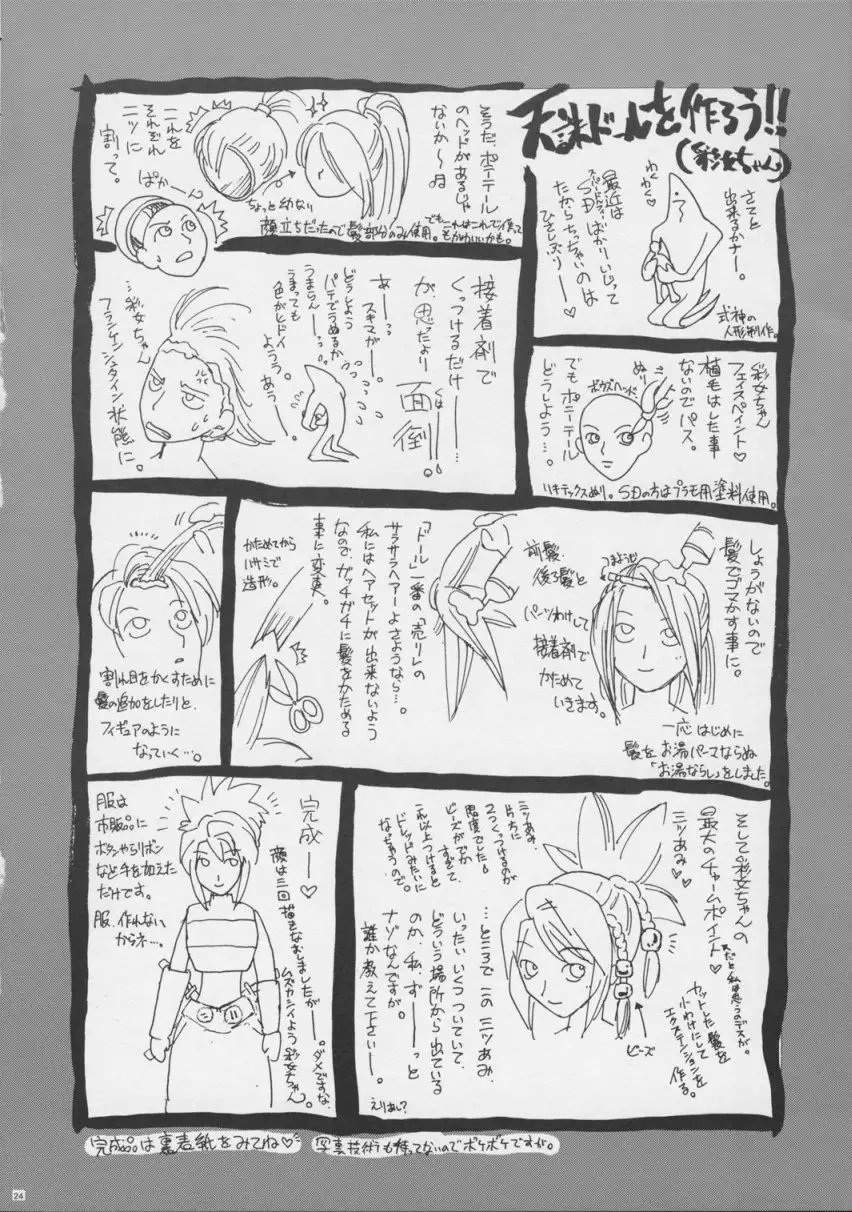 天誅ドールを作ろう!!
(彩女ちゃん)
さてと
出来るかナー。
わくわく♡
最近は
スーパードルフィー
SDばかりいじって
たからちっちゃいのは
ひさしぶりー♡
式神の
人形制作。
彩女ちゃん
フェイスペイント♡
植毛はした事
ないのでパス。
でもポニーテール
どうしよう…。
ぬりぬり
ボウズヘッド
リキテックスぬり。SDの方はプラモ用塗料使用。
そうだ、ポニーテール
のヘッドがあるじゃ
ないか〜
これを
それぞれ
二ツに
割って。
ぱかーん
ちょっと幼ない
顔立ちだったので髪部分のみ使用。
でもこれはこれで作って
もかわいいかも。
接着剤で
くっつけるだけ———
が、思ったより
面倒。
あーっっ
スキマがー。
どうしよう
パテでうめるか
うまらんーっっ
うまっても
色がヒドイ
ようう。
あうー。
…彩女ちゃん
フランケンシュタイン状態に。
しょうがないので
髪でゴマかす事に。
つまようじ
一応はじめに
髪をお湯パーマならぬ
「お湯ならし」をしました。
前髪、
後ろ髪と
パーツわけして
接着剤で
かためて
いきます。
「ドール」一番の「売り」の
サラサラヘアーよさようなら…。
私にはヘアセットが出来ないよう
なので、ガッチガチに髪をかためる
事に変更。
かためてから
ハサミで
造形。
割れ目をかくすために
髪の追加をしたりと、
フィギュアのように
なっていく…。
そして彩女ちゃんの
最大のチャームポイント♡
三ツあみ♡
カットした髪を
小わけにして
エクステンションを
作る。
ビーズ
三ツあみ、
片方に
2つくっつけるのが
限度でした
ビーズがでか
すぎて
これ以上つけると
ドレッドみたいに
なっちゃうので。
…ところでこの三ツあみ、
いったいいくつついていて、
どういう場所から出ている
のか、私、ずーーっと
ナゾなんですが。
誰か教えて下さいーー。
えりあし?
完成ー♡
顔は三回描きなおしましたがー。ダメですな。
ムズカシイよう彩女ちゃん。
服は
市販品に
ボタンやらリボン
など手を加えた
だけです。
服、作れない
からネ…。
完成品は裏表紙をみてね♡
写真技術も持ってないのでボケボケですが。
24